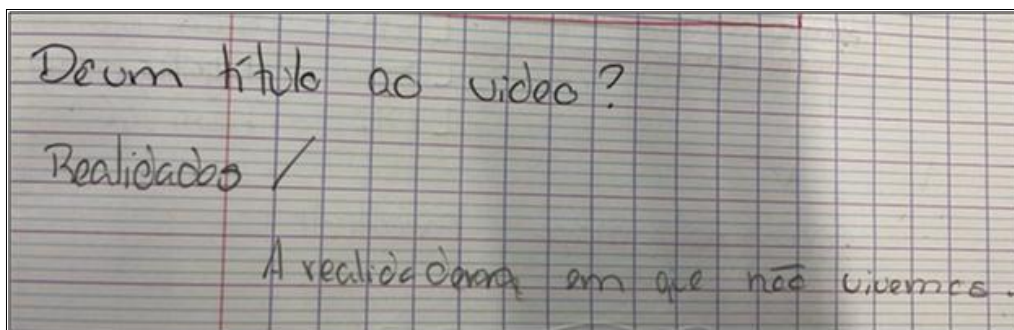 Dê um título ao video?
Realidades /
A realidade em que não vivemos.